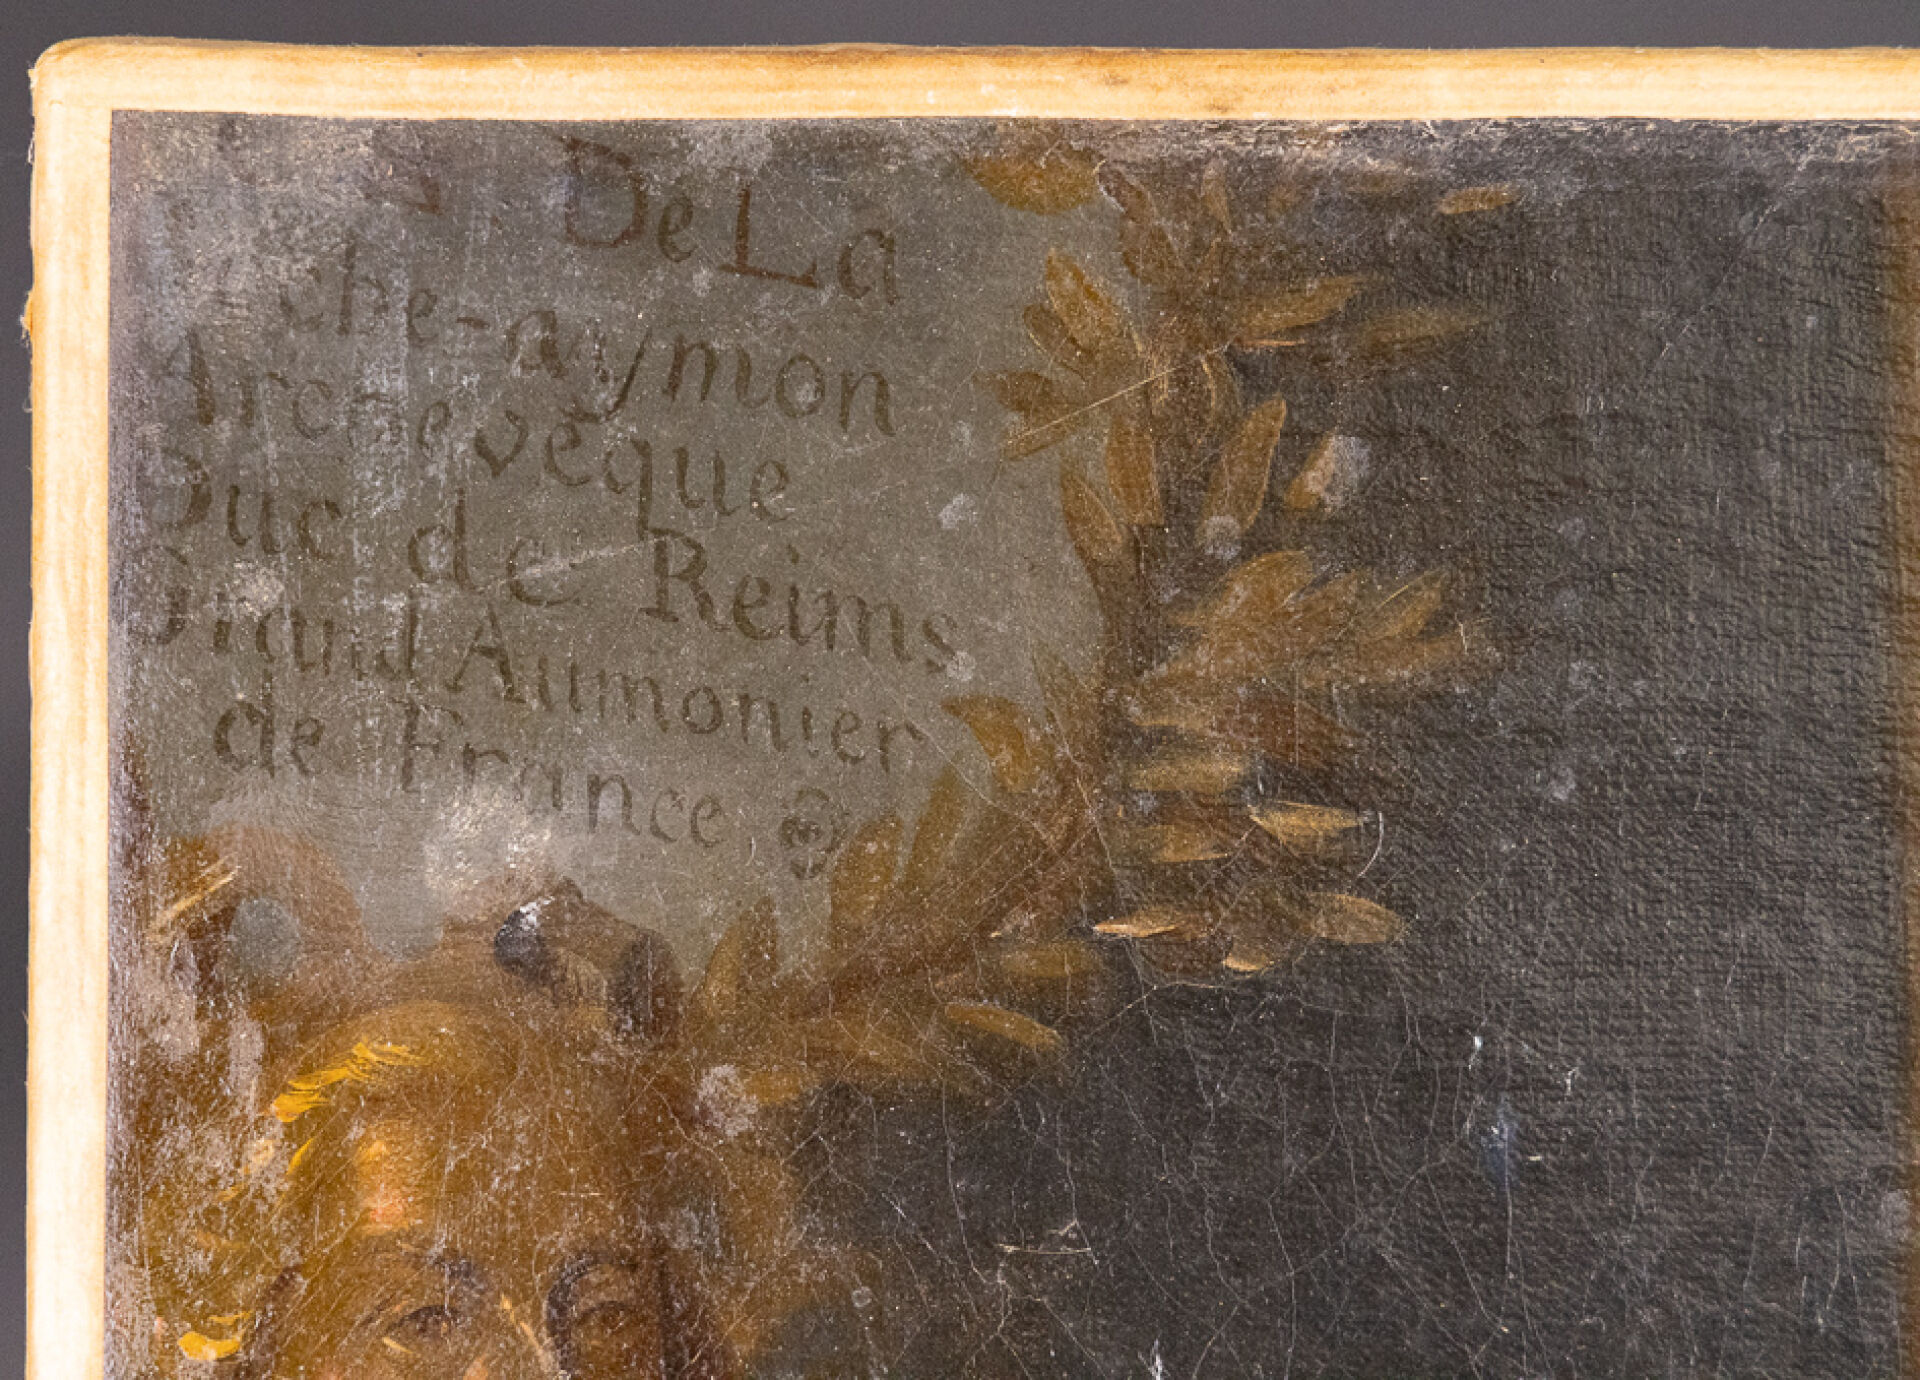 De La
che-aymon
Archevêque
Duc de Reims
Grand Aumonier
de France